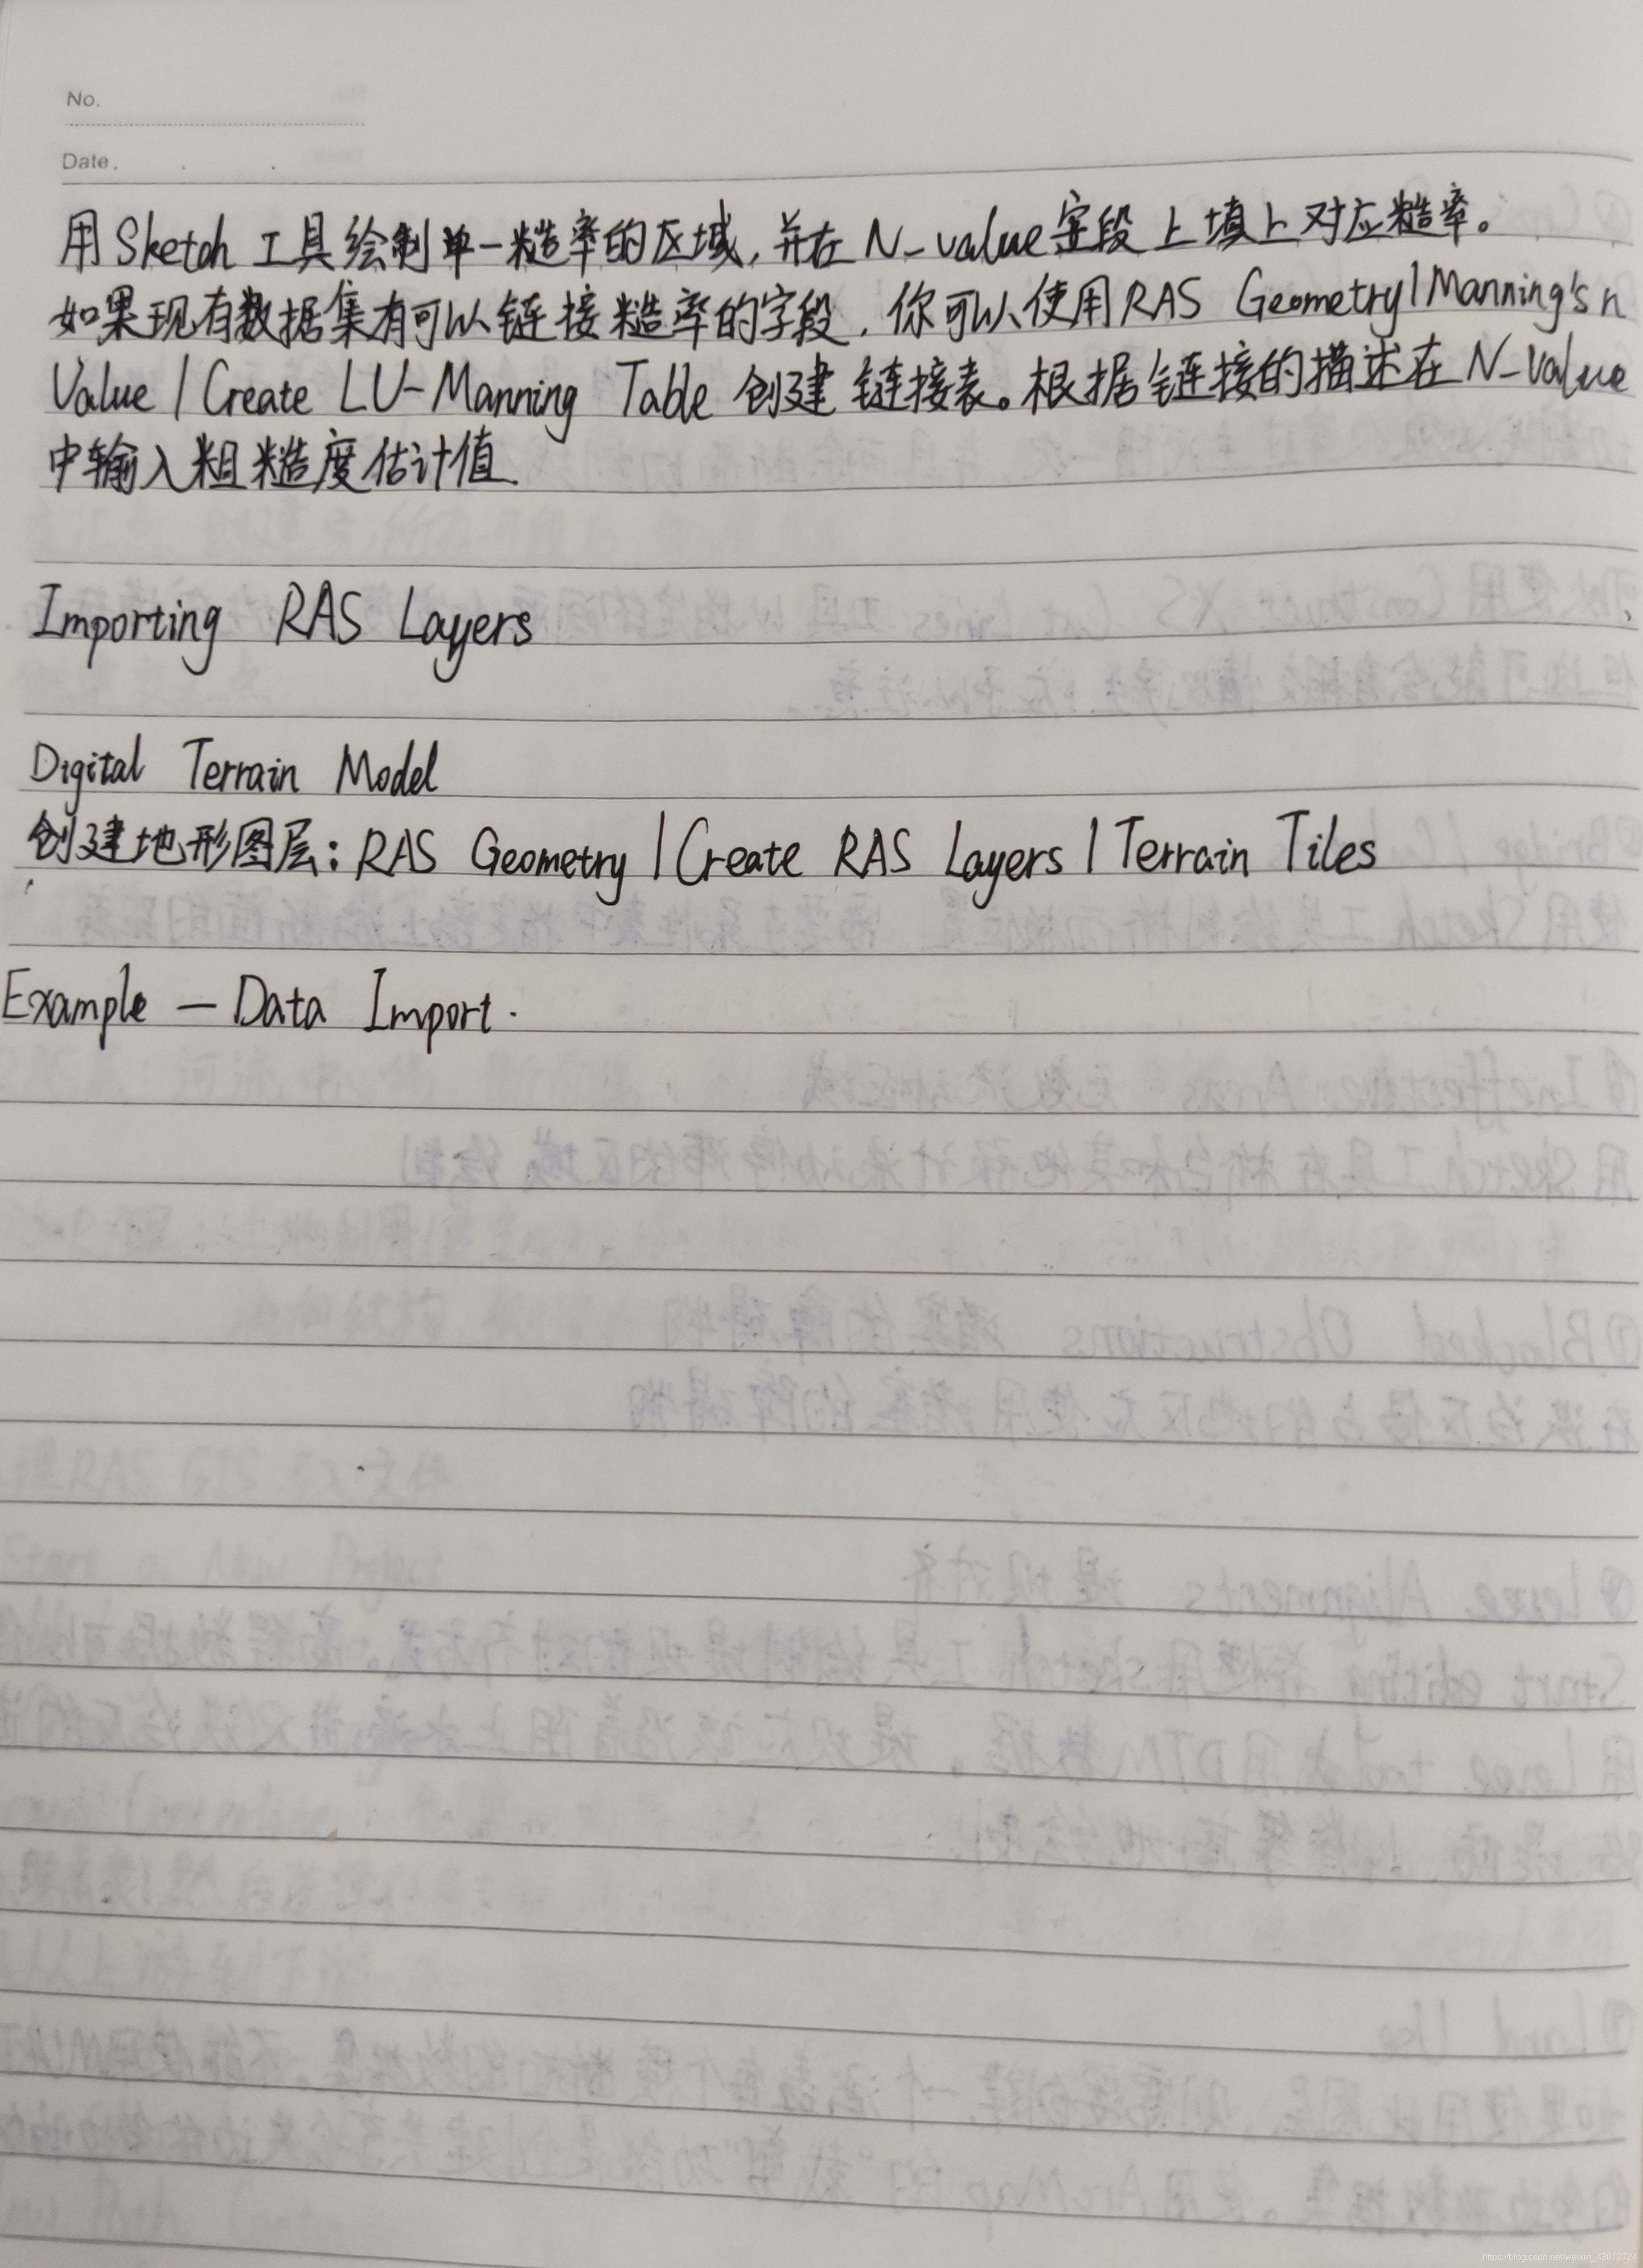 No.
Date.
用Sketch 工具绘制单一糙率的区域,并在 N_value字段上填上对应糙率。
如果现有数据集有可以链接糙率的字段,你可以使用RAS Geometry|Manning's n
Value | Create LU-Manning Table 创建链接表。根据链接的描述在 N_Value
中输入粗糙度估计值.
Importing RAS Layers
Digital Terrain Model
创建地形图层: RAS Geometry | Create RAS Layers | Terrain Tiles
Example — Data Import.
https://blog.csdn.net/weixin_43012724